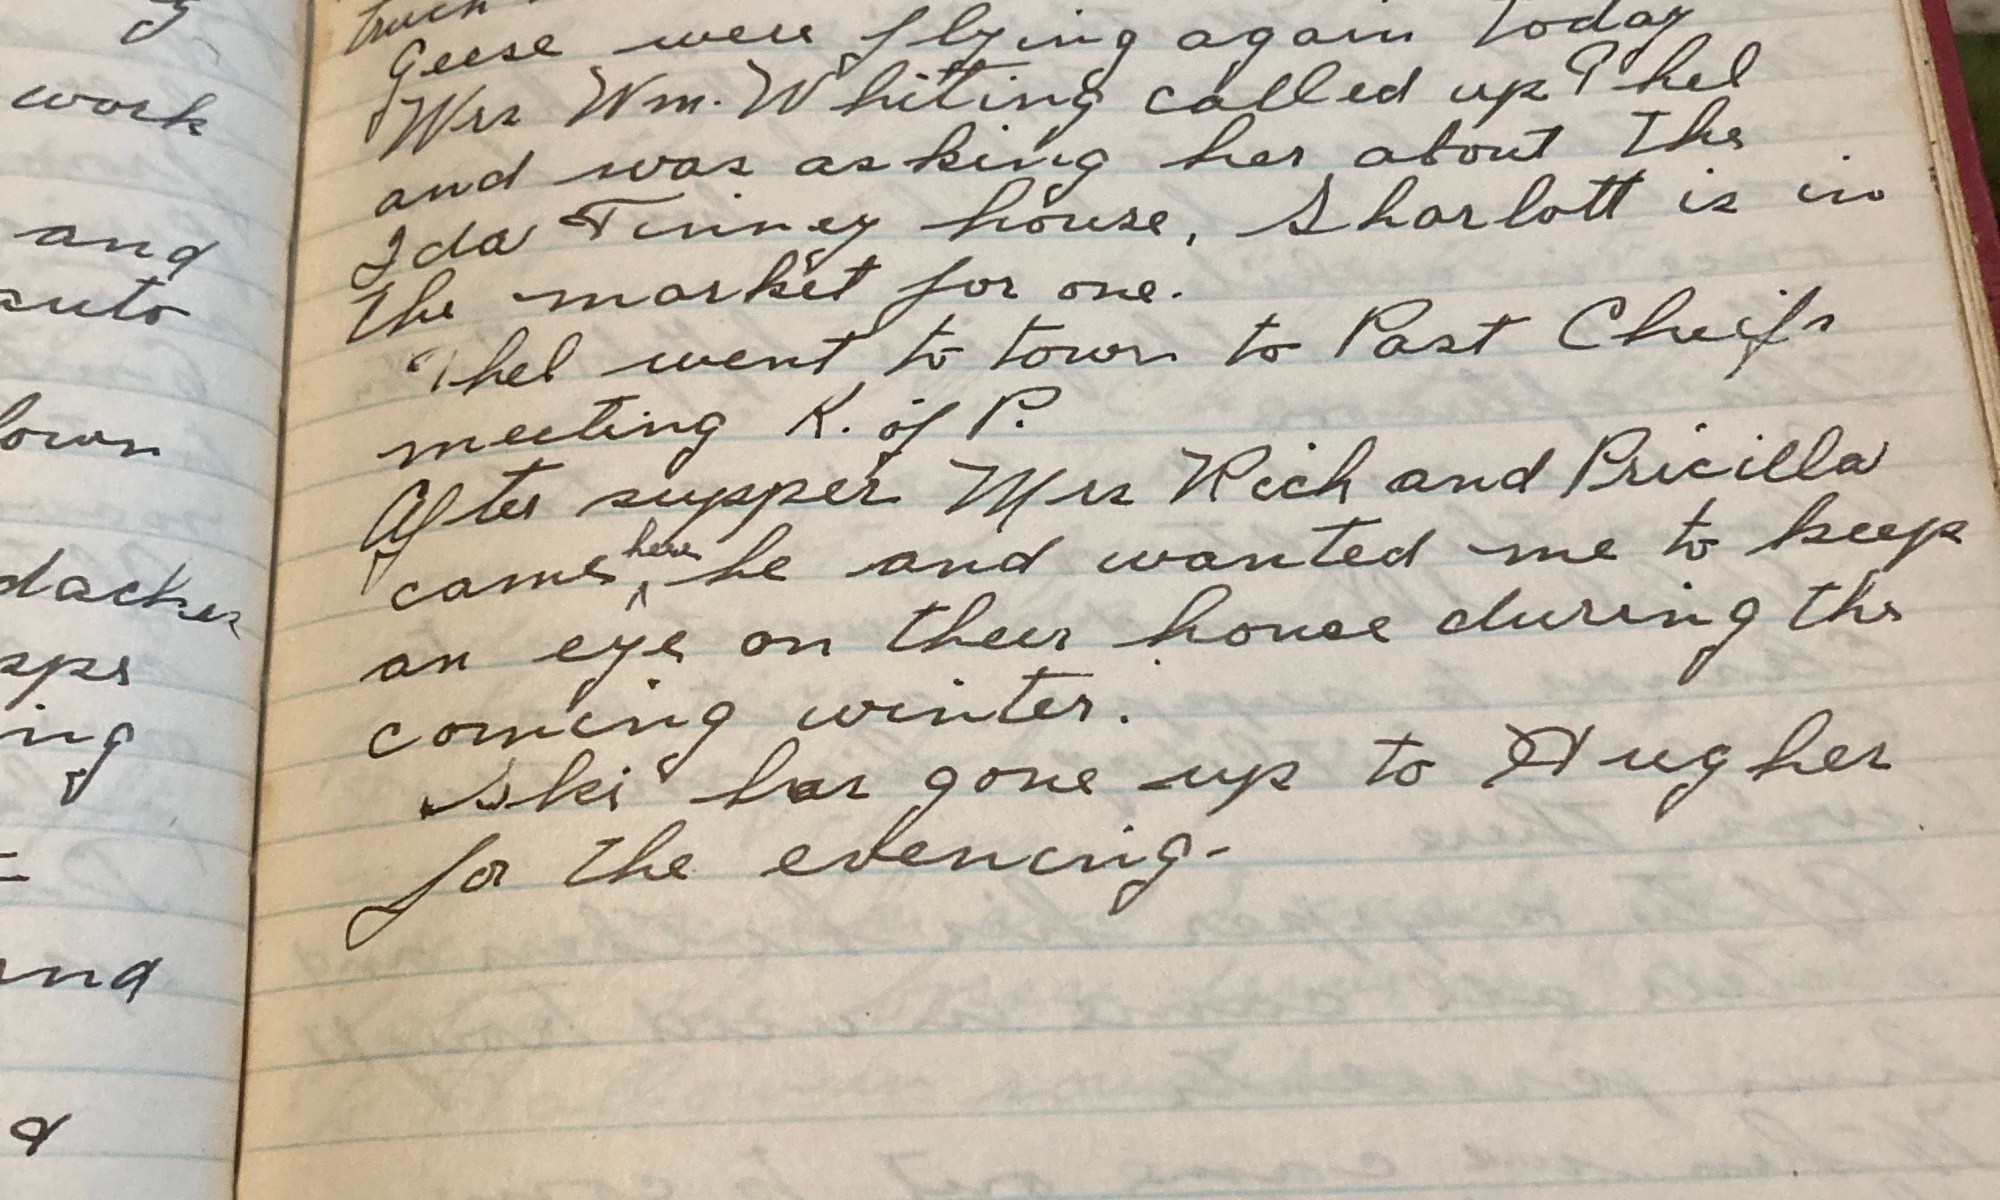 work
and
auto
down
ing
and
truck
Geese were flying again today
Mrs Wm. Whiting called up Thel
and was asking her about the
Ida Finney house, Sharlott is in
the market for one.
Thel went to town to Past Cheifs
meeting K. of P.
After supper Mrs Rich and Pricilla
came here he and wanted me to keep
an eye on their house during the
coming winter.
Ski has gone up to Hughes
for the evening.